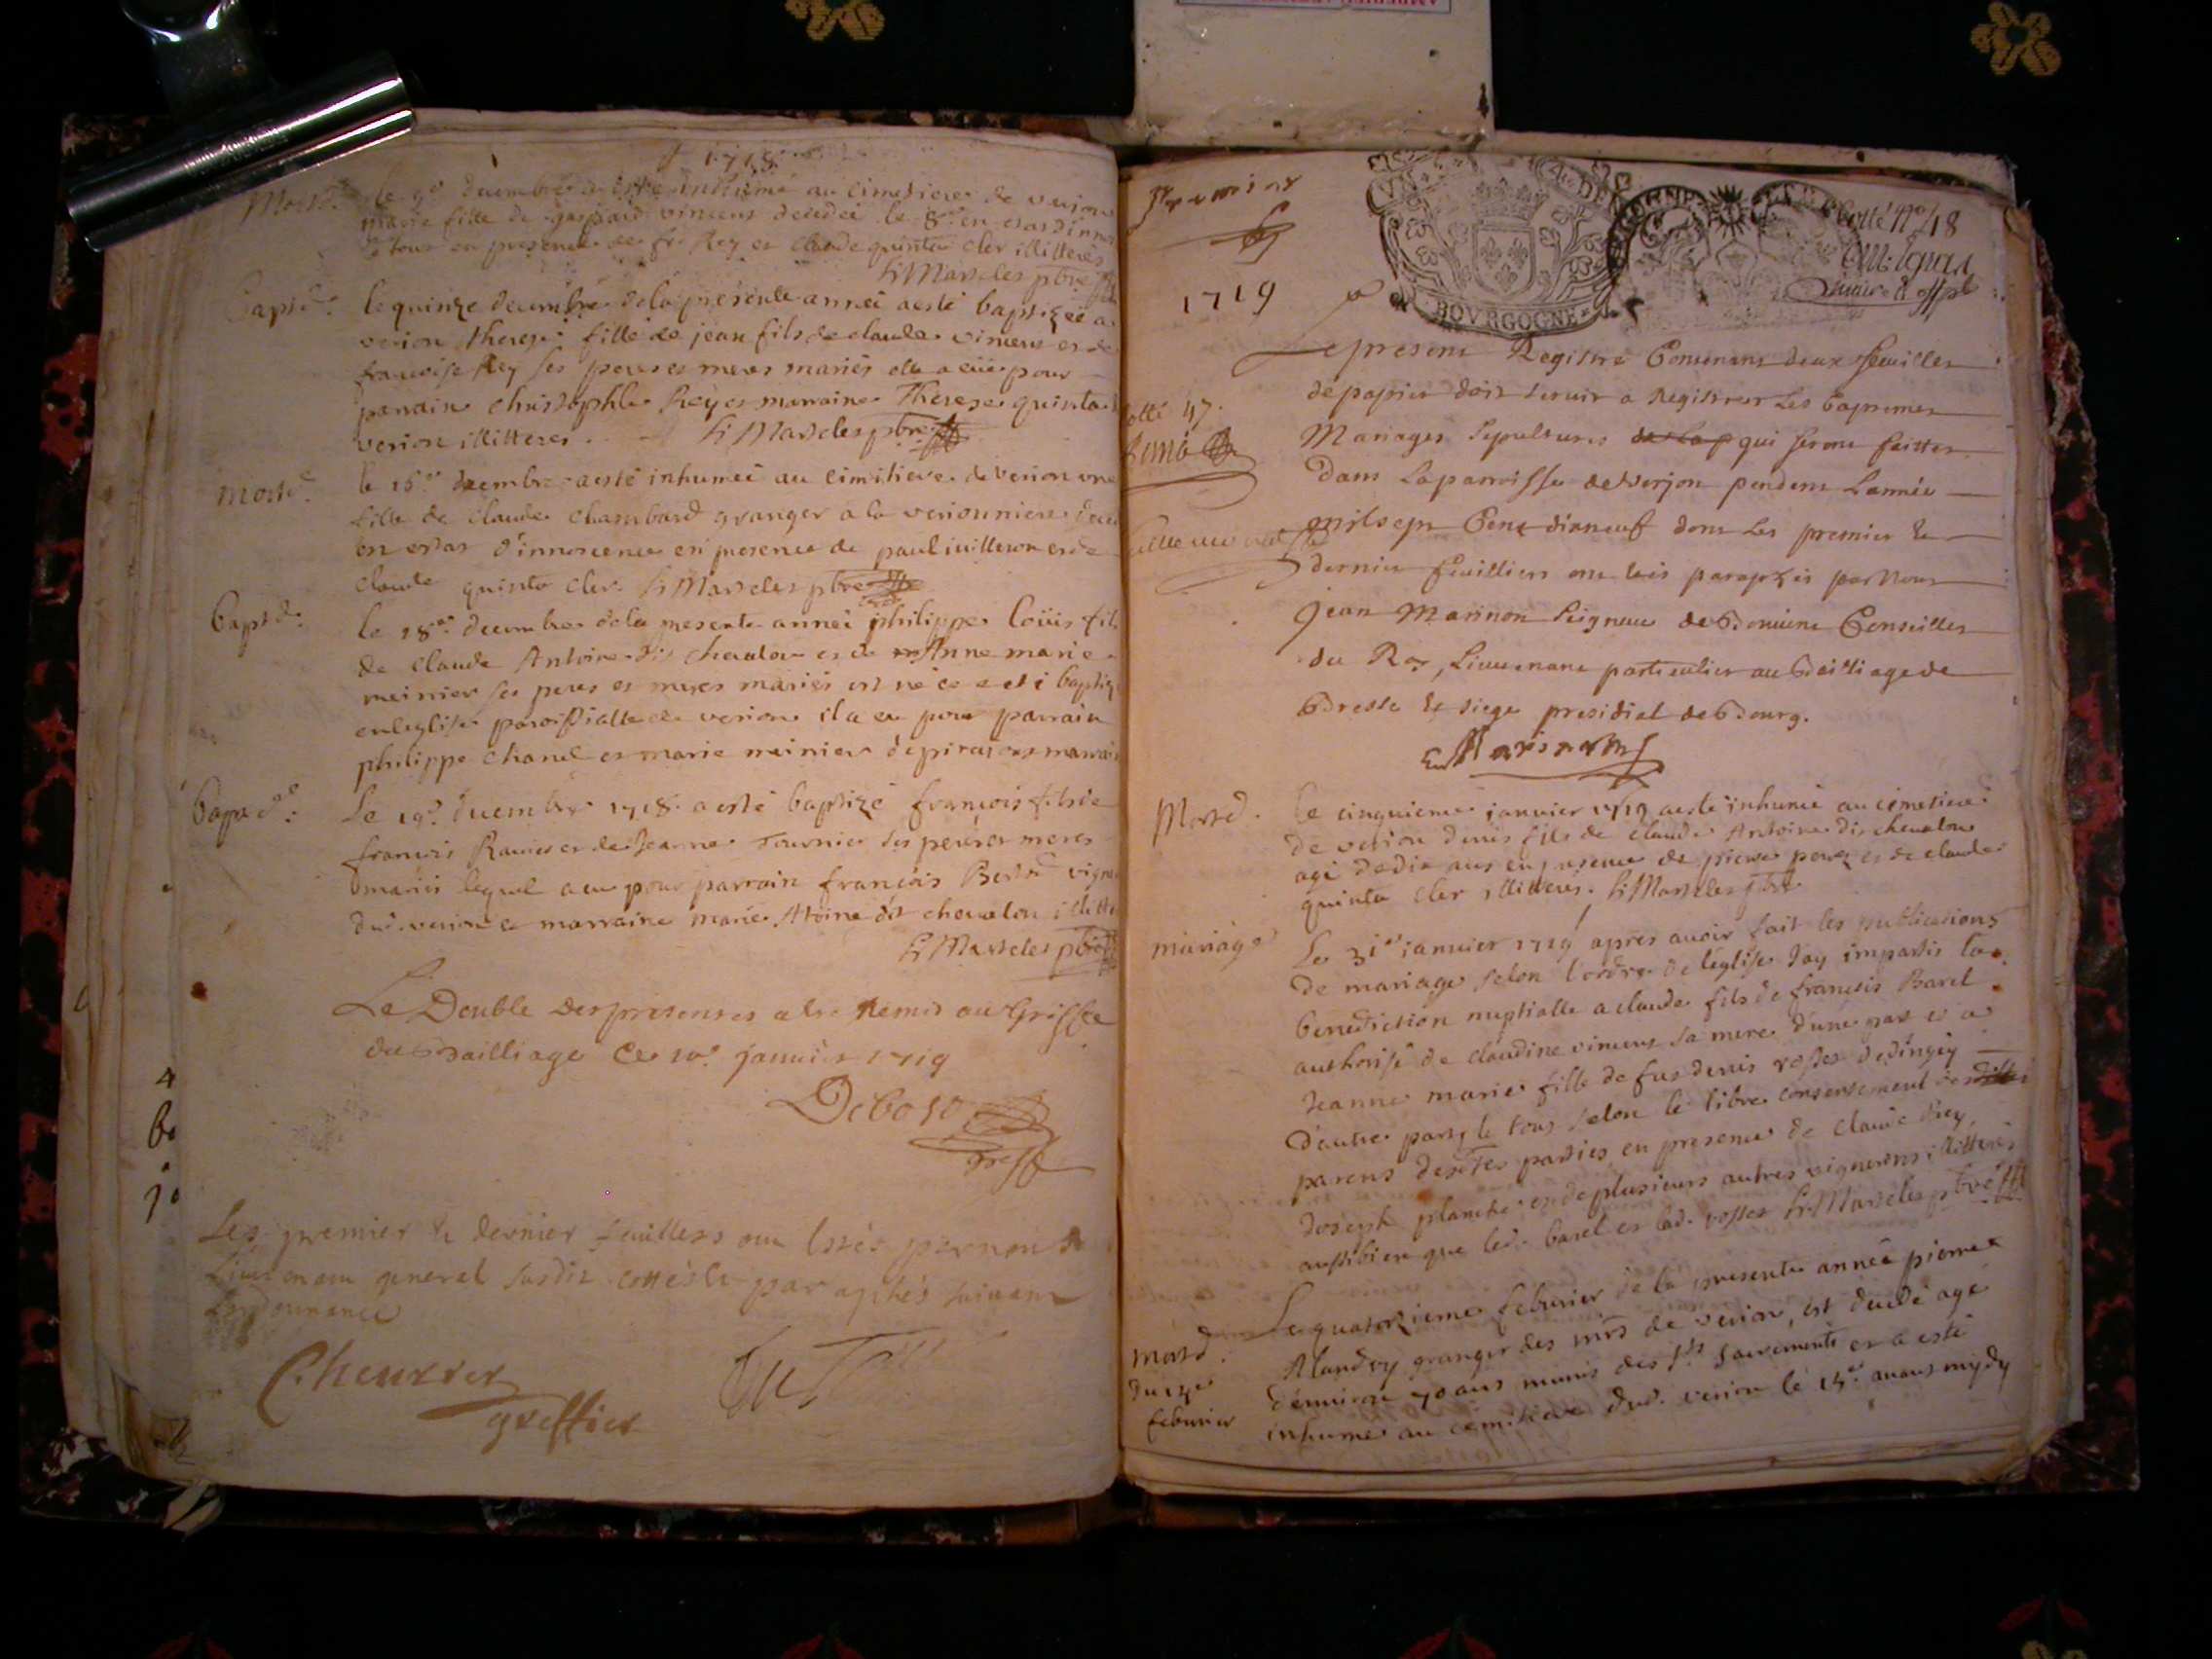 1718
Mort d. le 9e decembre a esté inhumé au cimetiere de verjon
marie fille de gaspard vincens decedeé le 8e en estat d'inno
le tout en presence de fr. Rey et claude quinta cler illitteres
Marteles pbre
Bapt d. le quinze decembre de la presente anneé a esté baptizeé a
verion therese fille de jean fils de claude vincens et de
francoise Rey ses peres et meres mariés elle a eüe pour
parrain christophle Rey et marraine Therese quinta
verion illitteres. Marteles pbre
mort d. le 16e decembre a esté inhumeé au cimitiere de verion une
fille de claude chambard granger a la verionniere
en estat d'innocence en presence de paul et de
claude quinta cler. Marteles pbre
bapt d. le 18e decembre de la presente anneé philippe loüis fil
de claude Antoine dit chevalon et de Anne marie
meinier ses peres et meres mariés est né et baptizé
en leglise paroissialle de verion il a eu pour parrain
philippe chanel et marie meinier marrain
bapt d. Le 19e decembre 1718 a esté baptizé francois fils de
francois et de Jeanne Tournier ses peres et meres
mariés lequel a eu pour parrain francois vigne
dud. verion et marraine marie Antoine dit chevalon illitt
Marteles pbre
Le Double des presentes a ete Remis au Griffe
du Bailliage Ce 10e janvier 1719
Deboso
greff
Les premier & dernier feuillets ont par nous
Lieutenant general susdit cottés & paraphés suivant
Lordonnance
Cheurrer
greffier
Premier
BOVRGOGNE
Cotté No 18
1719
Le present Registre Contenant deux feuilles
de papier doit servir a Registrer Les Baptemes
Mariages Sepultures qui seront faittes
Dans La parroisse de Verjon pendent Lannée
mil sept Cent dixneuf dont Les premier &
dernier feuilliers ont paraphés par Nous
Jean Marinon Seigneur de Conseiller
du Roy, Lieutenant particulier au Bailliage de
Bresse & siege presidial de Bourg.
Marinon
cotté 47.
Mort d. Le cinquieme janvier 1719 a esté inhumé au cimetiere
de verion denis fils de claude Antoine dit chevalon
agé de dix ans en presence de pierre et de claude
quinta cler illitteres. Marteles pbre
mariage Le 31e janvier 1719 apres avoir fait les publications
de mariage selon l'ordre de l'eglise J'ay imparti la
benediction nuptialle a claude fils de francois Barel
authorisé de claudine vincens sa mere d'une part et a
Jeanne marie fille de fut denis rosset de
d'autre part, le tout selon le libre consentement des
parens desdites parties en presence de claude Rey,
Joseph planche et de plusieurs autres vignerons illitterés
aussi bien que led. barel et lad. rosset Marteles pbre
mort d.
du 14e
febvrier
Le quatorzieme febvrier de la presente anneé pierre
Alandry granger des mrs de verion, est decedé agé
d'environ 70 ans munis des sts sacrements et a esté
inhumé au cemitiere dud. verion le 15e avant mydy